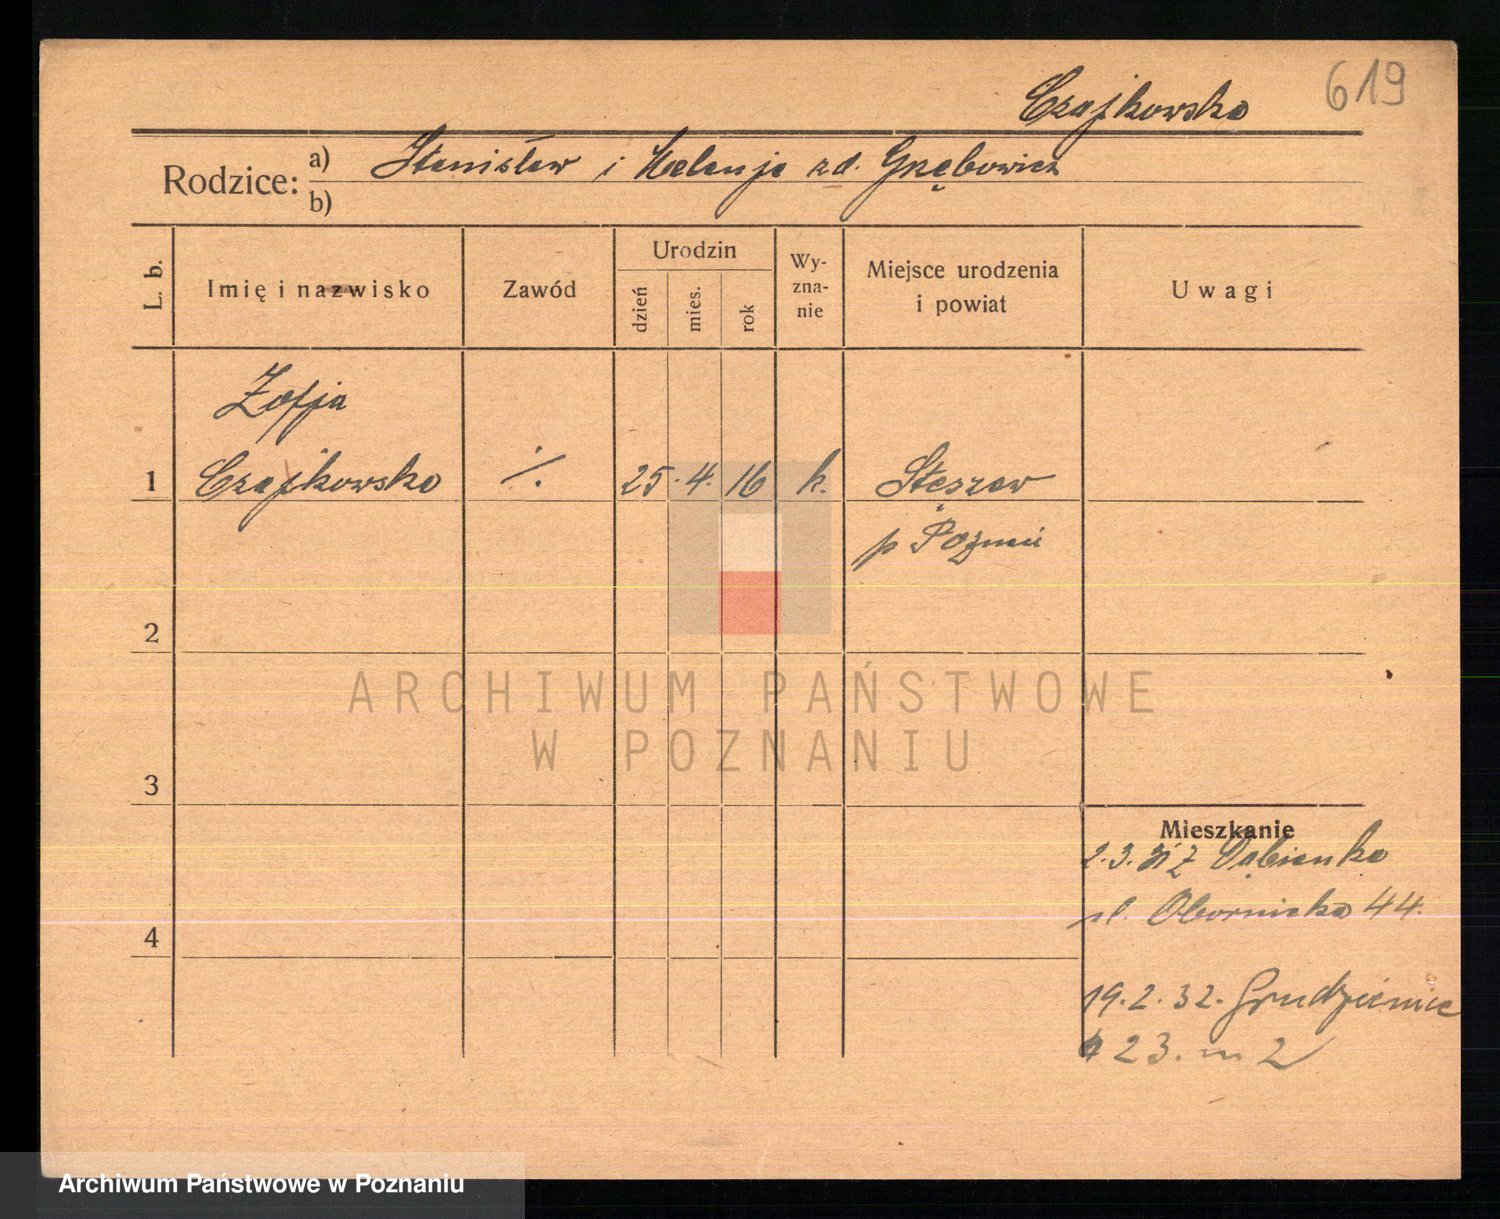 Czajkowska 619
Rodzice: a) Stanisław i Helenja zd. Grębowicz
b)
L. b. Imię i nazwisko Zawód Urodzin dzień mies. rok Wyznanie Miejsce urodzenia i powiat Uwagi
Zofja
1 Czajkowska ./. 25. 4. 16 k. Stęszew
p Poznań
2
ARCHIWUM PAŃSTWOWE
W POZNANIU
3
Mieszkanie
2.3.31 z Dąbienko
ul. Obornicka 44.
4
19.2.32. Grudzieniec
23. m 2
Archiwum Państwowe w Poznaniu